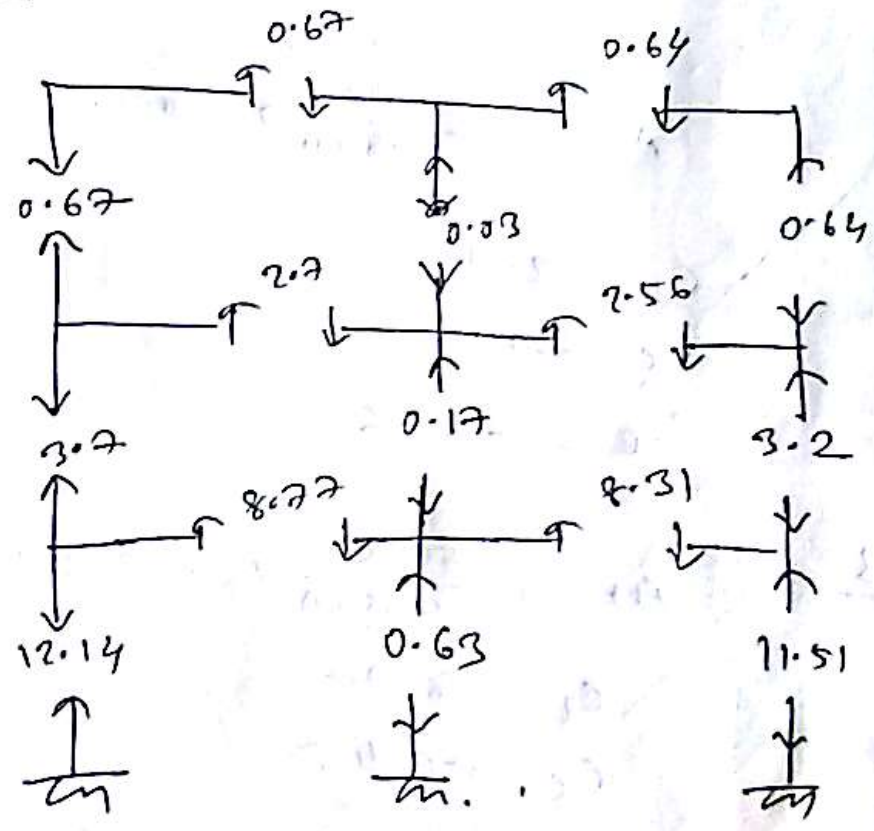 0.67 0.64
0.67 0.03 0.64
2.7 2.56
3.7 0.17 3.2
8.77 8.31
12.14 0.63 11.51